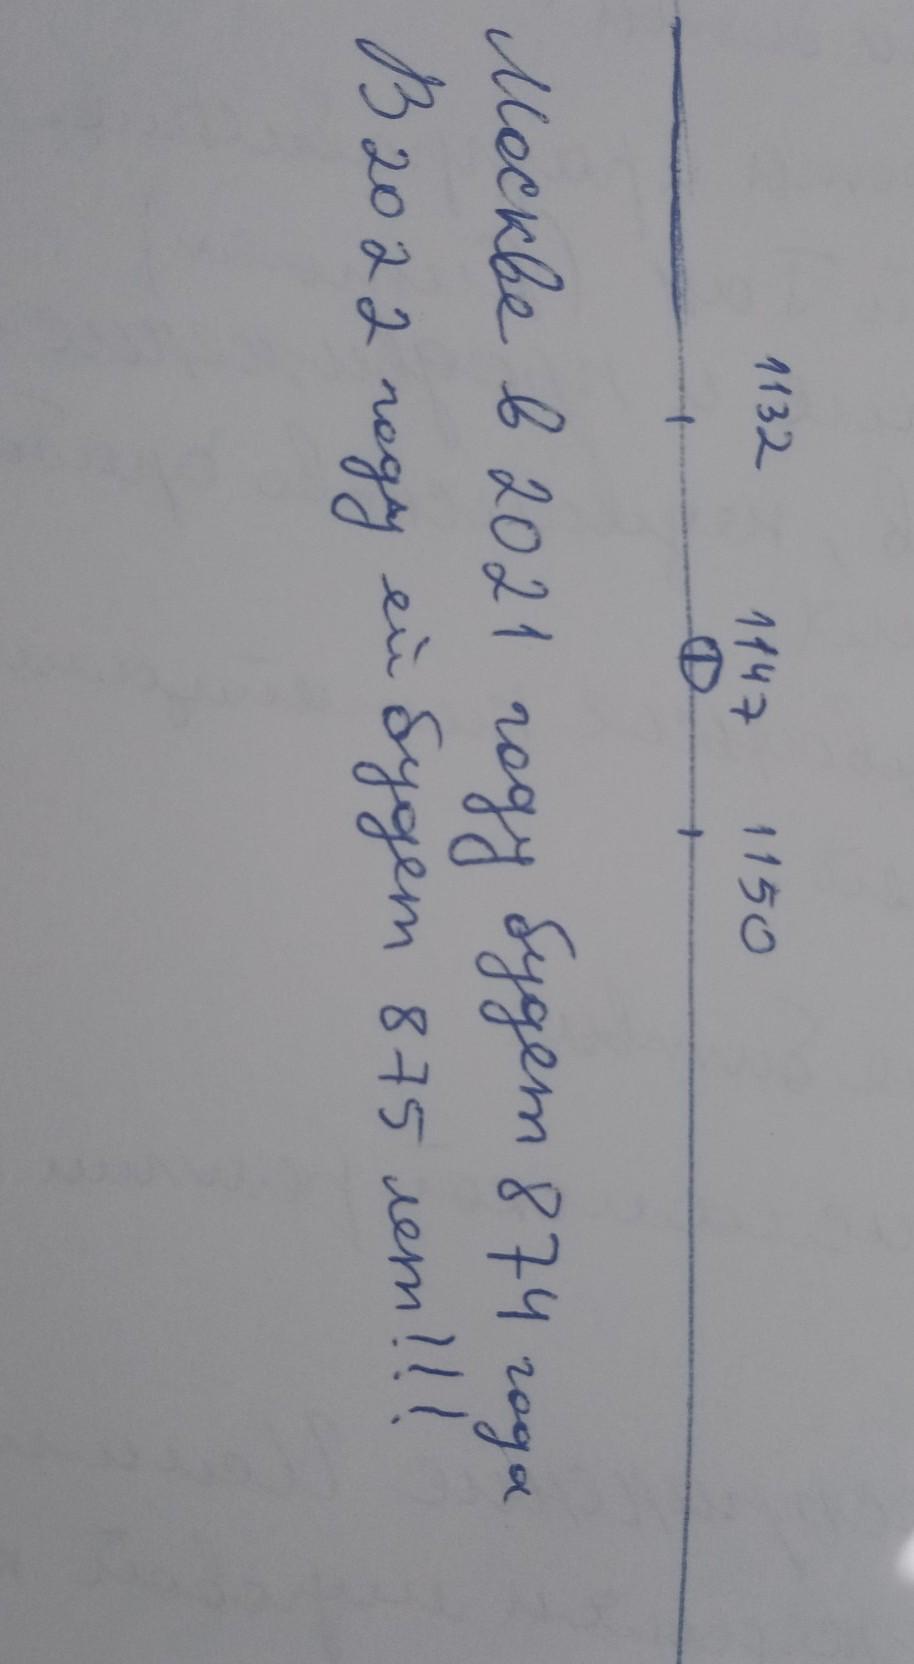 1132 1147 1150
Москве в 2021 году будет 874 года
В 2022 году ей будет 875 лет!!!